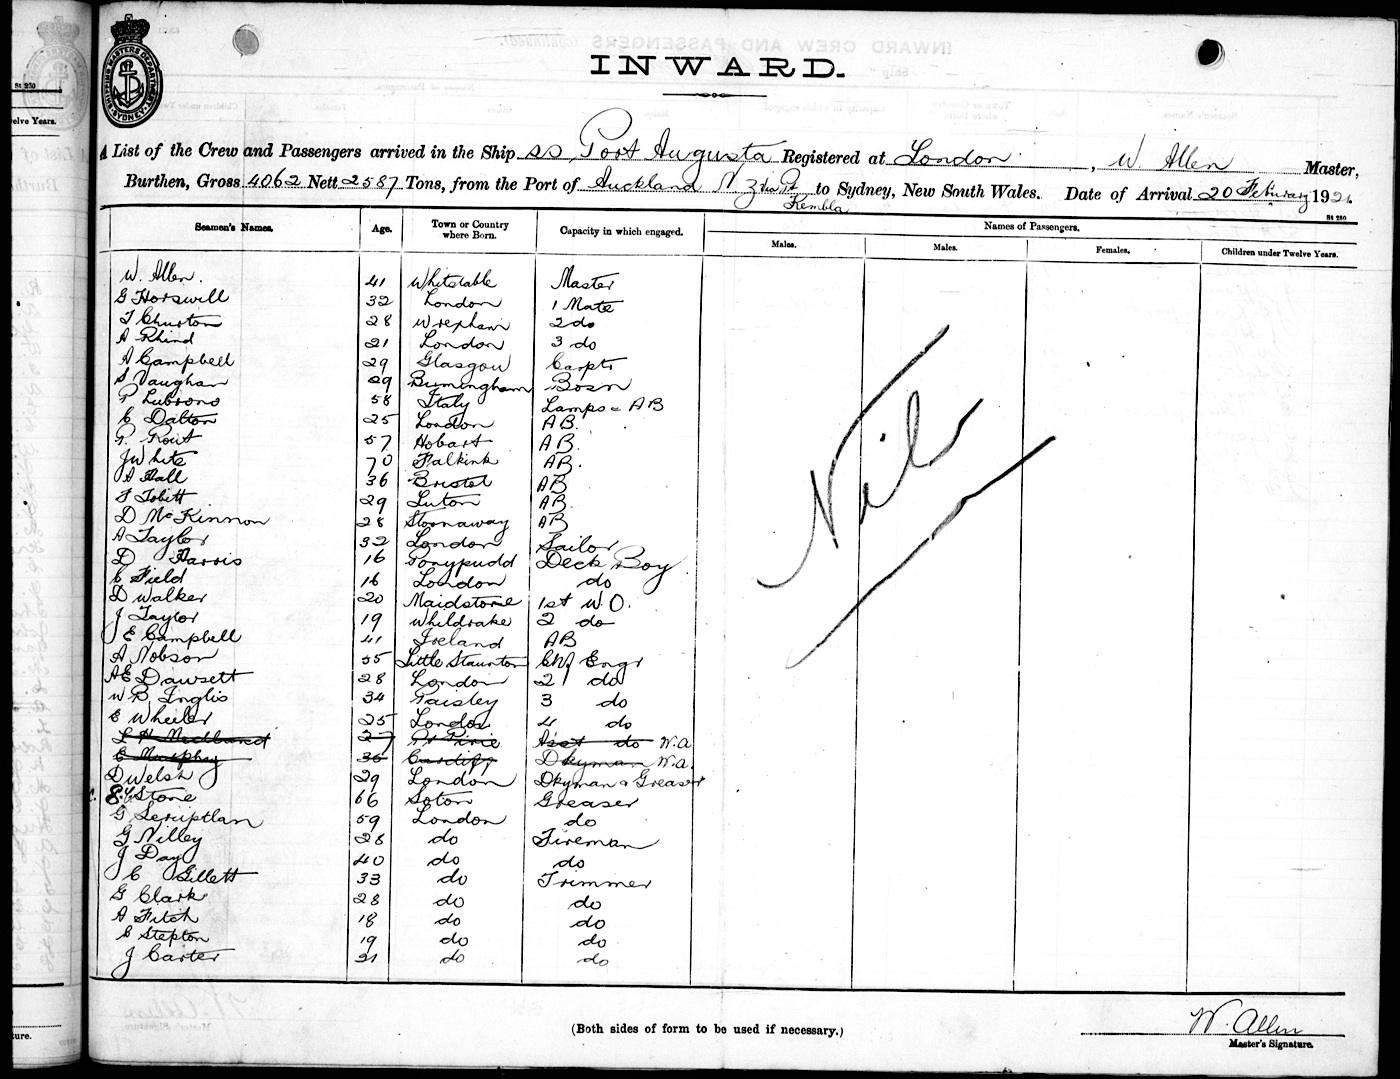 St 250
elve Years.
SHIPPING MASTERS DEPARTMENT
SYDNEY
INWARD.
A List of the Crew and Passengers arrived in the Ship SS Port Augusta Registered at London, W. Allen Master,
Burthen, Gross 4062 Nett 2587 Tons, from the Port of Auckland N Z via Pt Kembla to Sydney, New South Wales. Date of Arrival 20 February 192
St 250
Seamen's Names. Age. Town or Country where Born. Capacity in which engaged. Names of Passengers.
Males. Males. Females. Children under Twelve Years.
W. Allen. 41 Whitstable Master
G Horswill 32 London 1 Mate
T Churton 28 Wrepham 2 do
A Rhind 21 London 3 do
A Campbell 29 Glasgow Carptr
S Vaughan 29 Burmingham Bosn
P Lubrono 58 Italy Lamps = AB
C Dalton 25 London AB.
P. Prout 57 Hobart AB.
J White 70 Falkink AB.
A Hall 36 Bristol AB
F Tobitt 29 Luton AB.
D McKinnon 28 Stornaway AB
A Taylor 32 London Sailor
D Harris 16 Tonypudd Deck Boy
C Field 16 London do
D Walker 20 Maidstone 1st W.O.
J Taylor 19 Whildrake 2 do
J E Campbell 41 Ireland AB
A Nobson 55 Little Staunton Chf Engr
AE Dawsett 28 London 2 do
W B Inglis 34 Paisley 3 do
E Wheeler 25 London 4 do
L H Medhurst 27 Pt Pirie Asst do W.A
C Murphy 36 Cardiff Dkyman W.A.
D Welsh 29 London Dkyman & Greaser
Stone 66 Soton Greaser
G Seruptlan 59 London do
G Nilley 28 do Fireman
J Day 40 do do
C Gillett 33 do Trimmer
G Clark 28 do do
A Fitch 18 do do
C Stepton 19 do do
J Carter 31 do do
Nil
(Both sides of form to be used if necessary.)
W. Allen
Master's Signature.
ture.